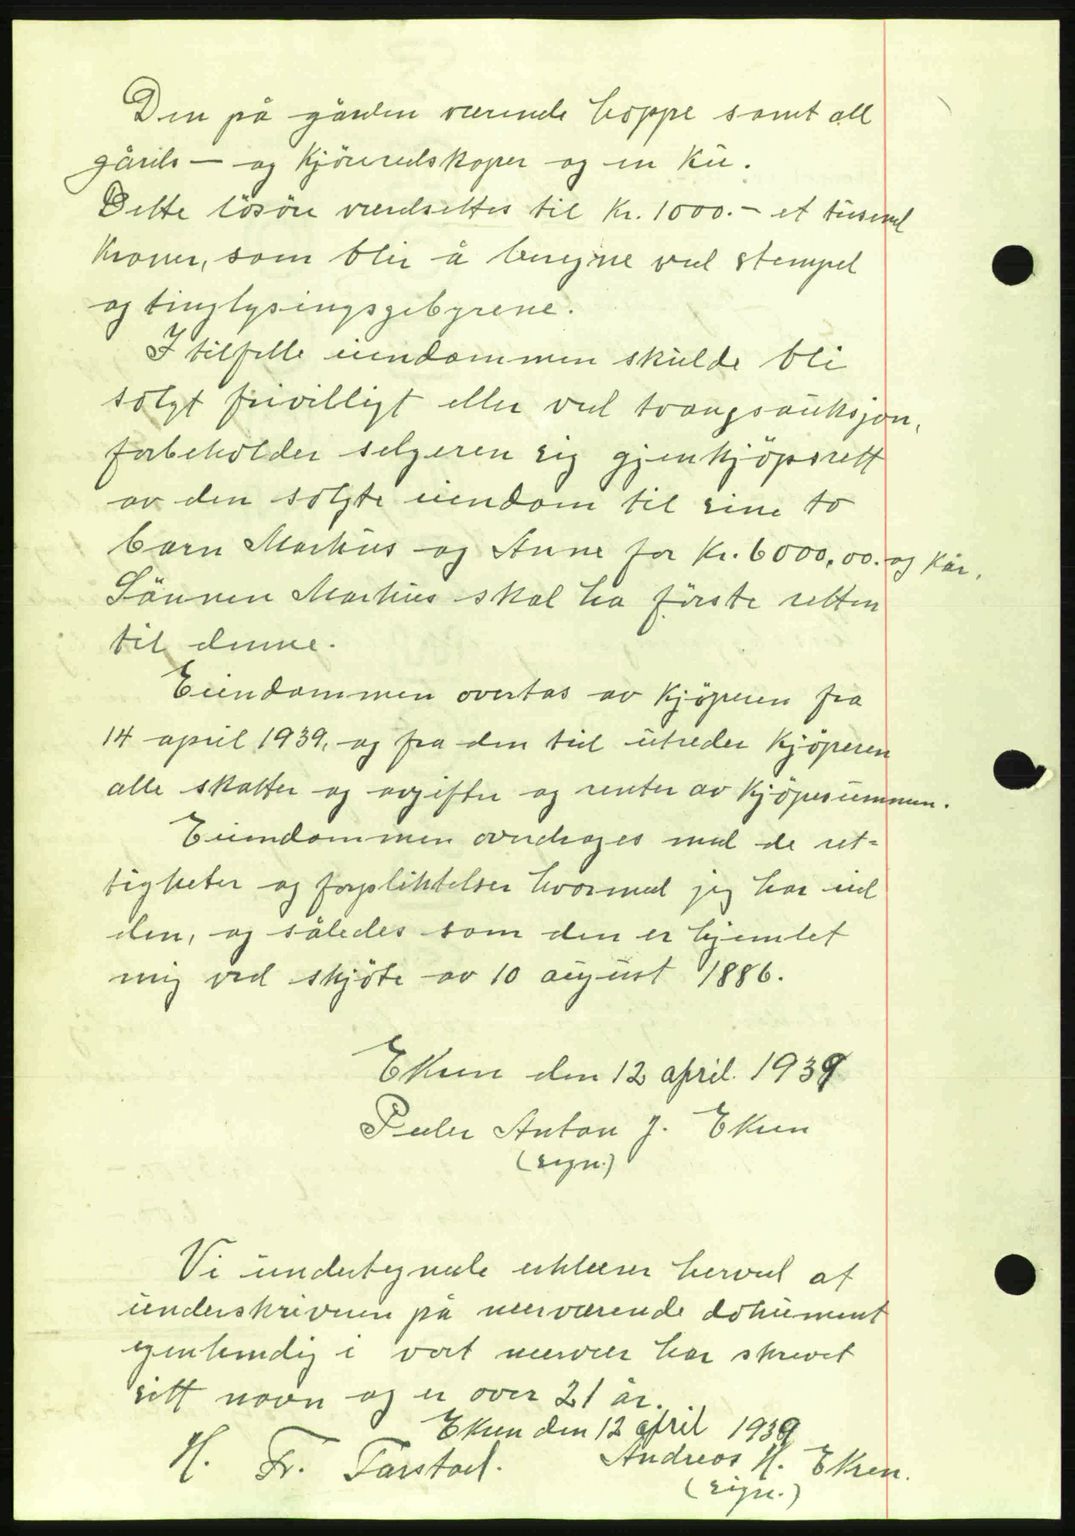 Den på gården værende hoppe samt all
gårds- og kjöreredskaper og en ku.
Dette lösöre verdsettes til Kr. 1000.- et tusend
kroner, som blir å beregne ved stempel
og tinglysingsgebyrene.
I tilfelle eiendommen skulde bli
solgt frivilligt eller ved tvangsauksjon,
forbeholder selgeren sig gjenkjöpsrett
av den solgte eiendom til sine to
barn Markus og Anne for Kr. 6000,00. og kår.
Sönnen Markus skal ha förste retten
til denne.
Eiendommen overtas av kjöperen fra
14 april 1939, og fra den tid utreder kjöperen
alle skatter og avgifter og renter av kjöpesummen.
Eiendommen overdrages med de ret=
tigheter og forpliktelser hvormed jeg har eid
den, og således som den er hjemlet
mig ved skjöte av 10 august 1886.
Eken den 12 april. 1939
Peder Anton J. Eken
(sign.)
Vi undertegnede erklærer herved at
underskriveren på nærværende dokument
egenhendig i vort nærvær har skrevet
sitt navn og er over 21 år.
Eken den 12 april 1939
H. Fr. Tarstad. Andreas H. Eken.
(sign.)